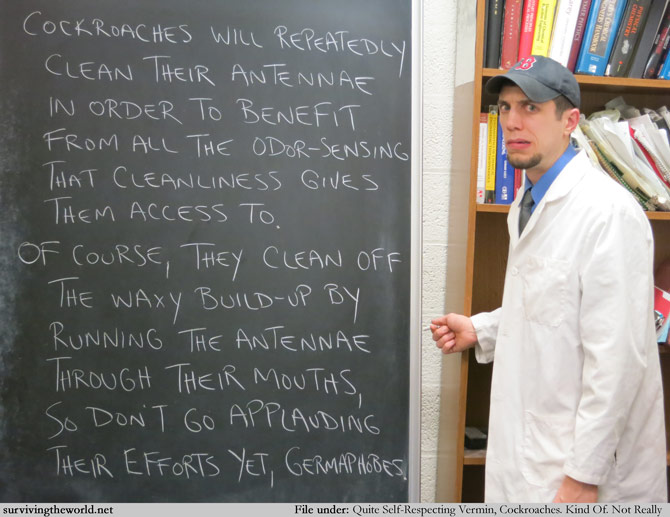 COCKROACHES WILL REPEATEDLY
CLEAN THEIR ANTENNAE
IN ORDER TO BENEFIT
FROM ALL THE ODOR-SENSING
THAT CLEANLINESS GIVES
THEM ACCESS TO.
OF COURSE, THEY CLEAN OFF
THE WAXY BUILD-UP BY
RUNNING THE ANTENNAE
THROUGH THEIR MOUTHS,
SO DON'T GO APPLAUDING
THEIR EFFORTS YET, GERMAPHOBES.
survivingtheworld.net
File under: Quite Self-Respecting Vermin, Cockroaches. Kind Of. Not Really